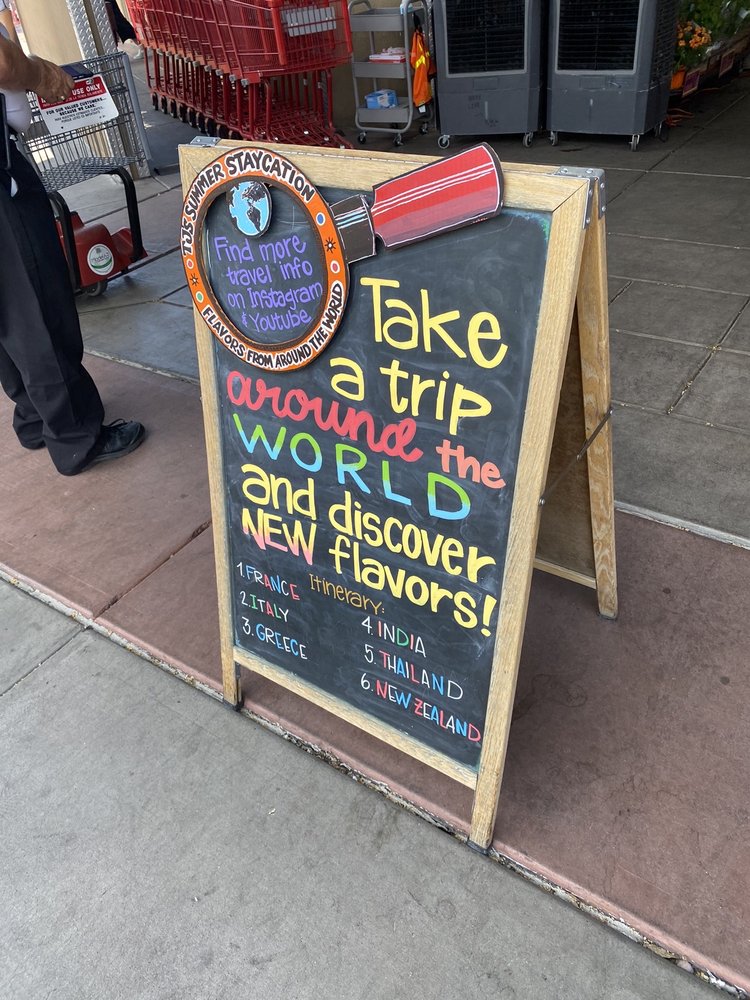 TJ'S SUMMER STAYCATION
Find more
travel info
on Instagram
& Youtube
FLAVORS FROM AROUND THE WORLD
Take
a trip
around the
WORLD
and discover
NEW flavors!
Itinerary:
1. FRANCE
2. ITALY
3. GREECE
4. INDIA
5. THAILAND
6. NEW ZEALAND
USE ONLY
FOR OUR VALUED CUSTOMERS
BECAUSE WE CARE